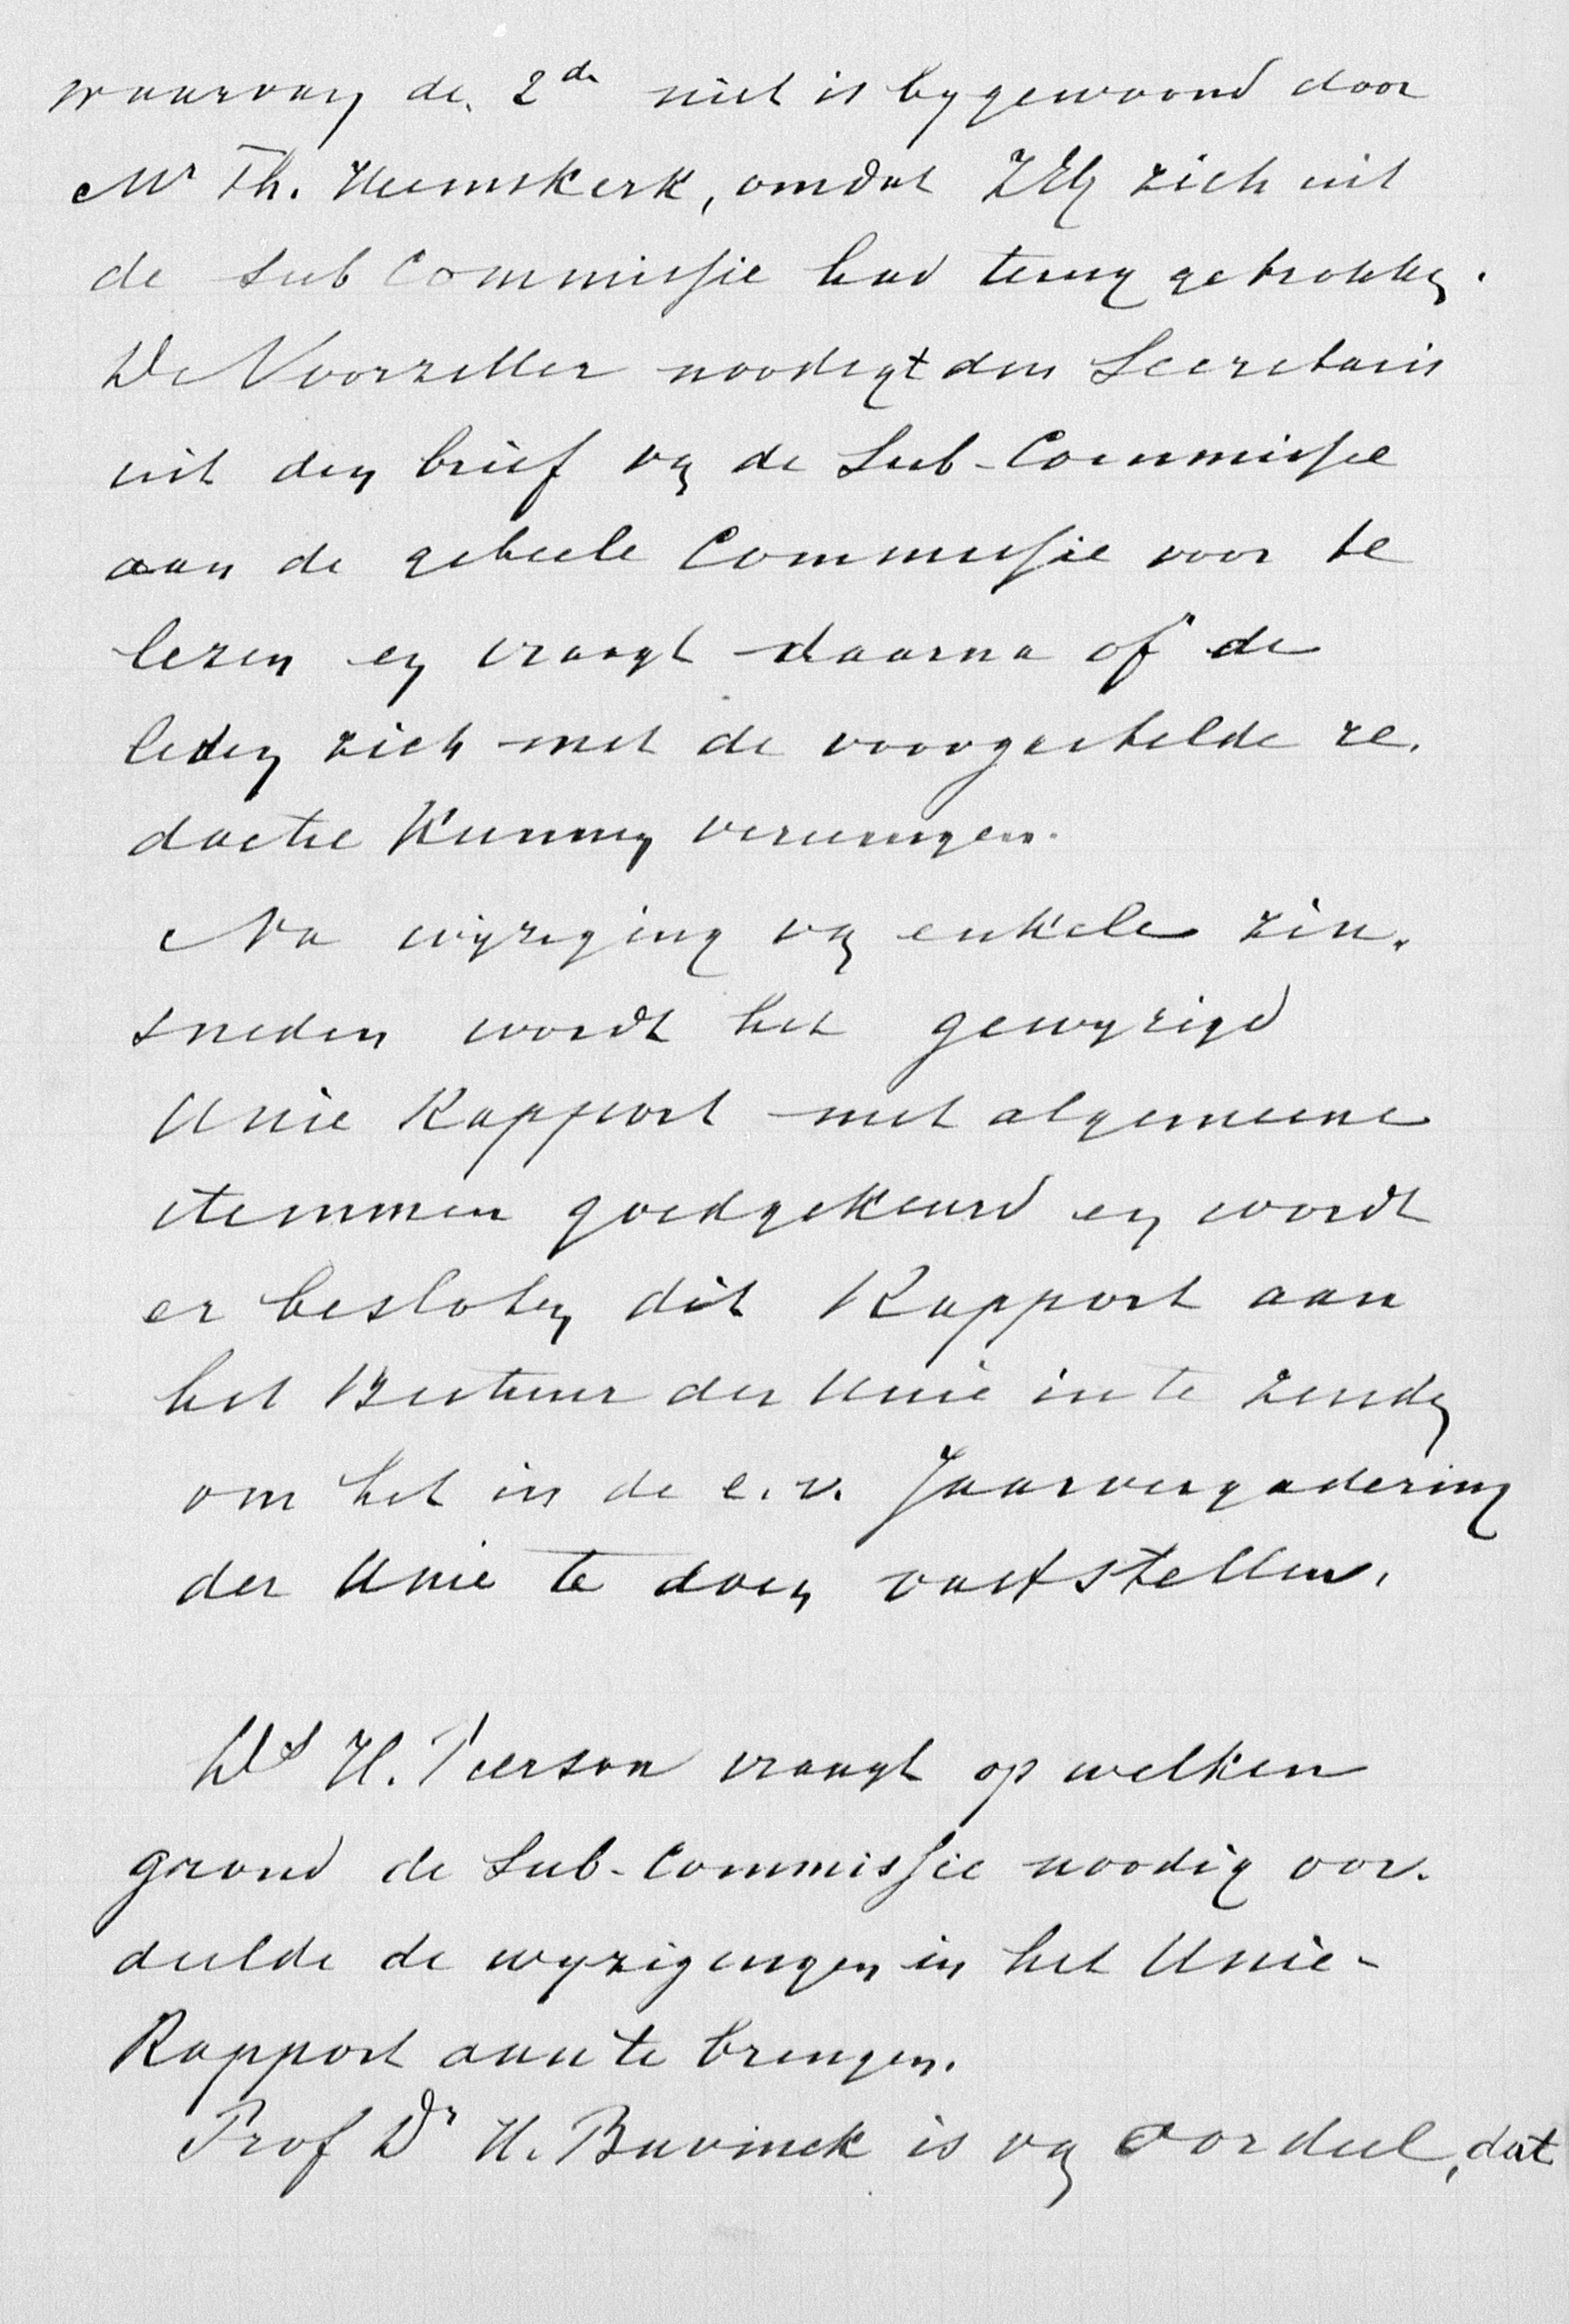 waarvan de 2de niet is bygewoond door
Mr Th. Heemskerk, omdat ZEG zich uit
de Sub Commissie had terug getrokken.
De Voorzitter noodigt den Secretaris
uit den brief van de Sub-Commissie
aan de geheele Commissie voor te
lezen en vraagt daarna of de
leden zich met de voorgestelde re-
dactie kunnen vereenigen.
Na wijziging van enkele zin-
sneden wordt het gewyzigd
Unie Rapport met algemeene
stemmen goedgekeurd en wordt
er besloten dit Rapport aan
het Bestuur der Unie in te zenden
om het in de e.v. Jaarvergadering
der Unie te doen vaststellen.
Ds H. Pierson vraagt op welken
grond de Sub-Commissie noodig oor-
deelde de wyzigingen in het Unie-
Rapport aan te brengen.
Prof Dr H. Bavinck is van oordeel, dat